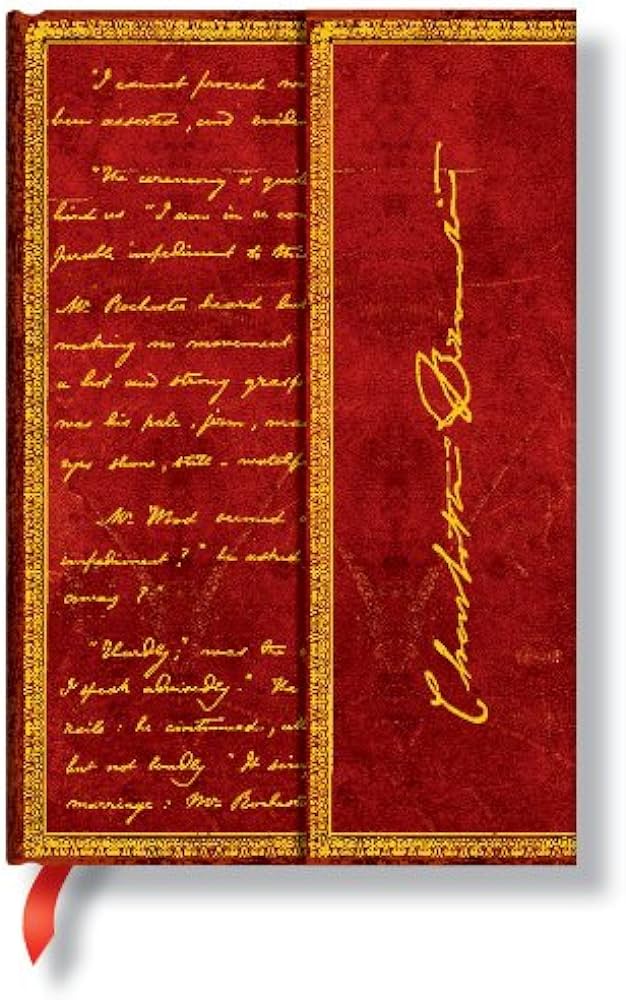 "I cannot proceed wi
been asserted, and eviden
"The ceremony is quit
hind us "I am in a con
perable impediment to this
Mr Rochester heard but
making no movement
a hot and strong grasp
was his pale, firm, mas
eyes shone, still - watchf
Mr Wood seemed
impediment?" he asked
away?"
"Hardly;" was the
I speak advisedly." The
rails: he continued, utt
but not loudly "It sim
marriage: Mr Rocheste
Charlotte Brontë